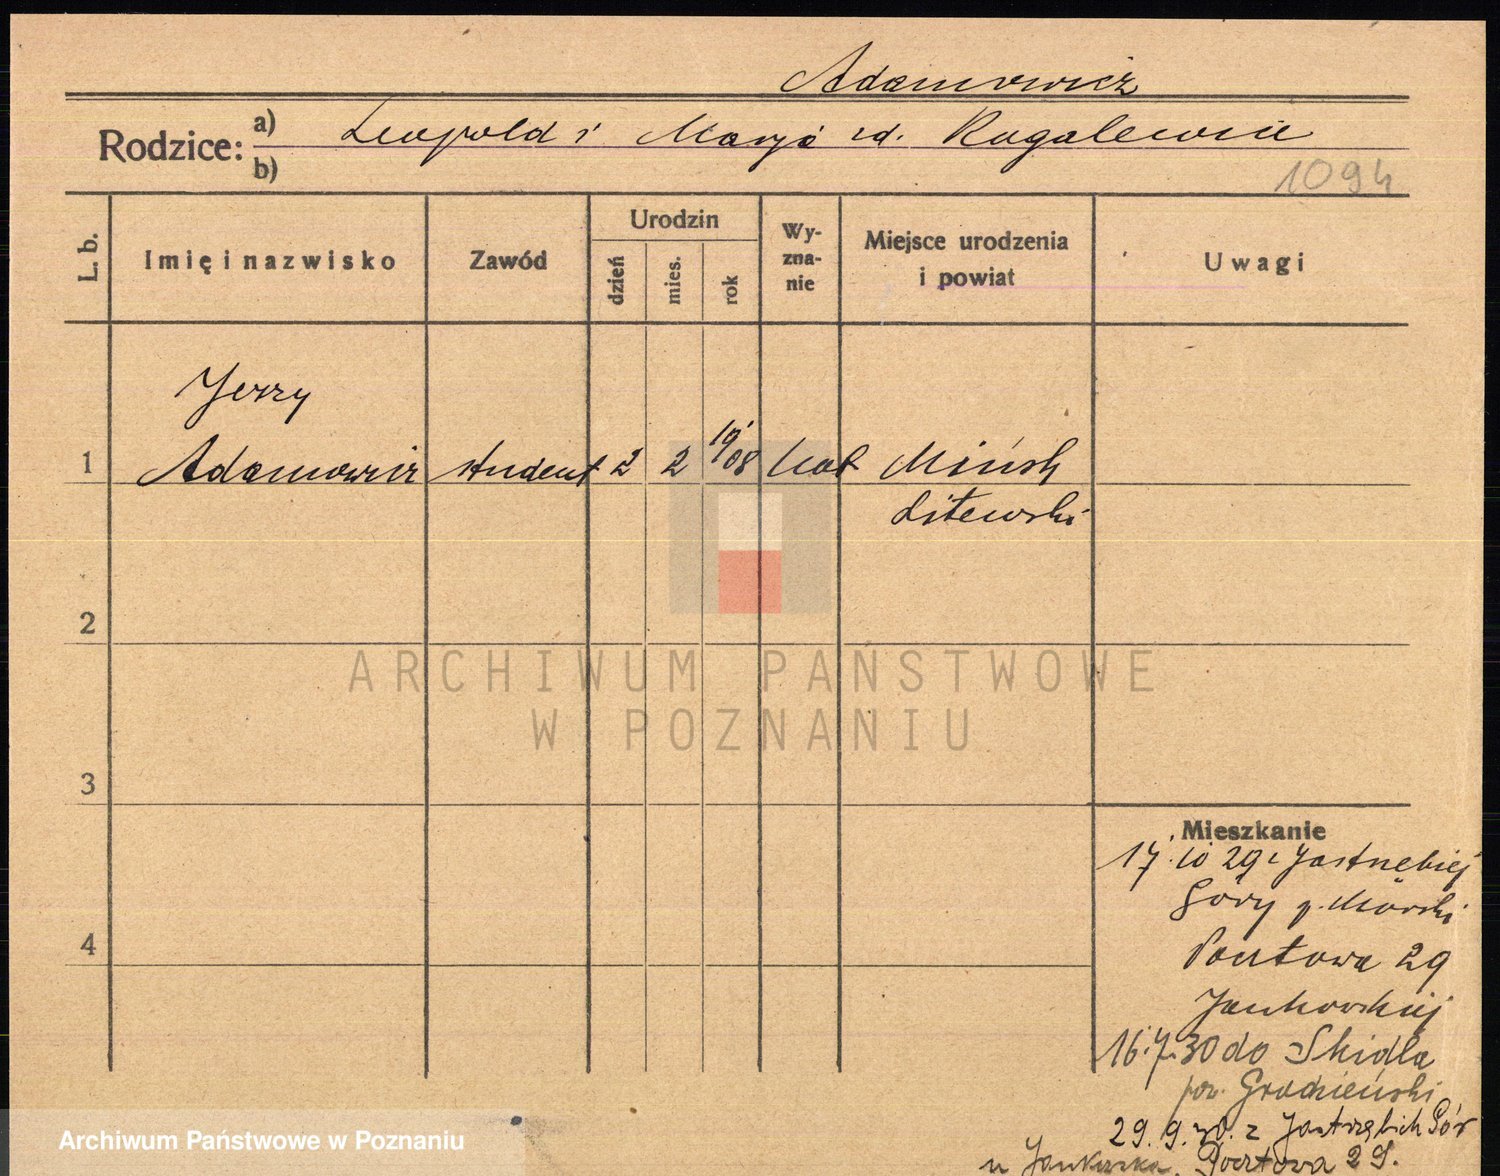 Adamowicz
Rodzice: a) Leopold i Marja zd. Rogalewicz
b)
1094
L. b.
Imię i nazwisko
Zawód
Urodzin
dzień
mies.
rok
Wy-
zna-
nie
Miejsce urodzenia
i powiat
Uwagi
Jerzy
1 Adamowicz student 2 2 19/08 kat Mińsk
Litewski
2
ARCHIWUM PAŃSTWOWE
W POZNANIU
3
Mieszkanie
17.10 29 z Jastrzębiej
Góry p. Morski
4
Pocztowa 29
Jankowskiej
16.7.30 do Skidla
pow. Grodzieński
29.9.30. z Jastrzębich Gór
u Jankowska. Pocztowa 29.
Archiwum Państwowe w Poznaniu